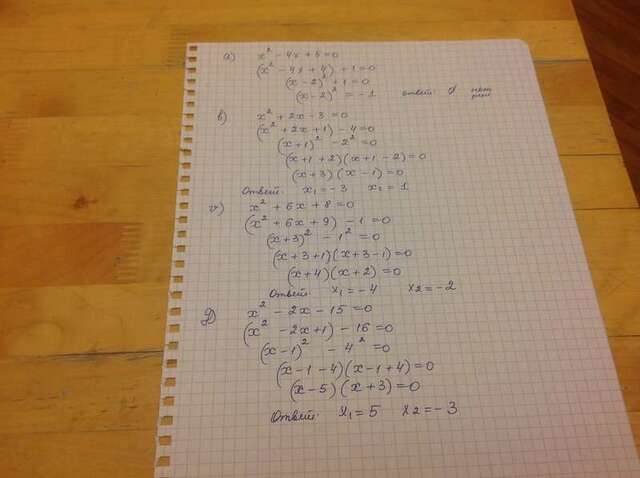 а) x² - 4x + 5 = 0
(x² - 4x + 4) + 1 = 0
(x - 2)² + 1 = 0
(x - 2)² = -1 ответ: ∅ нет реш
в) x² + 2x - 3 = 0
(x² + 2x + 1) - 4 = 0
(x + 1)² - 2² = 0
(x + 1 + 2)(x + 1 - 2) = 0
(x + 3)(x - 1) = 0
Ответ: x₁ = -3 x₂ = 1
v) x² + 6x + 8 = 0
(x² + 6x + 9) - 1 = 0
(x + 3)² - 1² = 0
(x + 3 + 1)(x + 3 - 1) = 0
(x + 4)(x + 2) = 0
Ответ: x₁ = -4 x2 = -2
Д) x² - 2x - 15 = 0
(x² - 2x + 1) - 16 = 0
(x - 1)² - 4² = 0
(x - 1 - 4)(x - 1 + 4) = 0
(x - 5)(x + 3) = 0
Ответ: x₁ = 5 x2 = -3